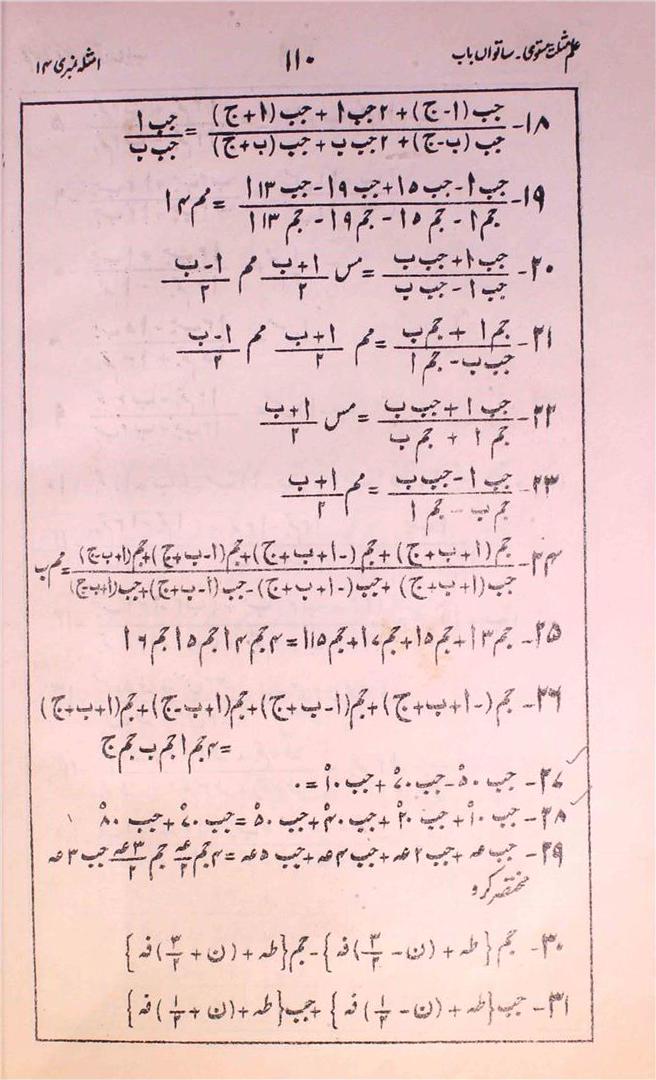 علم مثلث مستوی۔ ساتواں باب ۱۱۰ امثلہ نمبری ۱۴
۱۸- (جب (ا-ج) + ۲جب ا + جب (ا+ج)) / (جب (ب-ج) + ۲جب ب + جب (ب+ج)) = جب ا / جب ب
۱۹- (جب ا - جب ۵ا + جب ۹ا - جب ۱۳ا) / (جم ا - جم ۵ا - جم ۹ا - جم ۱۳ا) = مم ۴ا
۲۰- (جب ا + جب ب) / (جب ا - جب ب) = مس (ا+ب)/۲ مم (ا-ب)/۲
۲۱- (جم ا + جم ب) / (جب ب - جم ا) = مم (ا+ب)/۲ مم (ا-ب)/۲
۲۲- (جب ا + جب ب) / (جم ا + جم ب) = مس (ا+ب)/۲
۲۳- (جب ا - جب ب) / (جم ب - جم ا) = مم (ا+ب)/۲
۲۴- (جم (ا+ب+ج) + جم (-ا+ب+ج) + جم (ا-ب+ج) + جم (ا+ب-ج)) / (جب (ا+ب+ج) + جب (-ا+ب+ج) - جب (ا-ب+ج) + جب (ا+ب-ج)) = مم ب
۲۵- جم ۳ا + جم ۵ا + جم ۷ا + جم ۱۵ا = ۴ جم ۴ا جم ۵ا جم ۶ا
۲۶- جم (-ا+ب+ج) + جم (ا-ب+ج) + جم (ا+ب-ج) + جم (ا+ب+ج)
= ۴ جم ا جم ب جم ج
۲۷- جب ۵۰° - جب ۷۰° + جب ۱۰° = ۰
۲۸- جب ۱۰° + جب ۲۰° + جب ۴۰° + جب ۵۰° = جب ۷۰° + جب ۸۰°
۲۹- جب عہ + جب ۲عہ + جب ۴عہ + جب ۵عہ = ۴ جم عہ/۲ جم ۳عہ/۲ جب ۳عہ
مختصر کرو
۳۰- جم {طہ + (ن - ۳/۲) فہ} - جم {طہ + (ن + ۳/۲) فہ}
۳۱- جب {طہ + (ن - ۱/۲) فہ} + جب {طہ + (ن + ۱/۲) فہ}